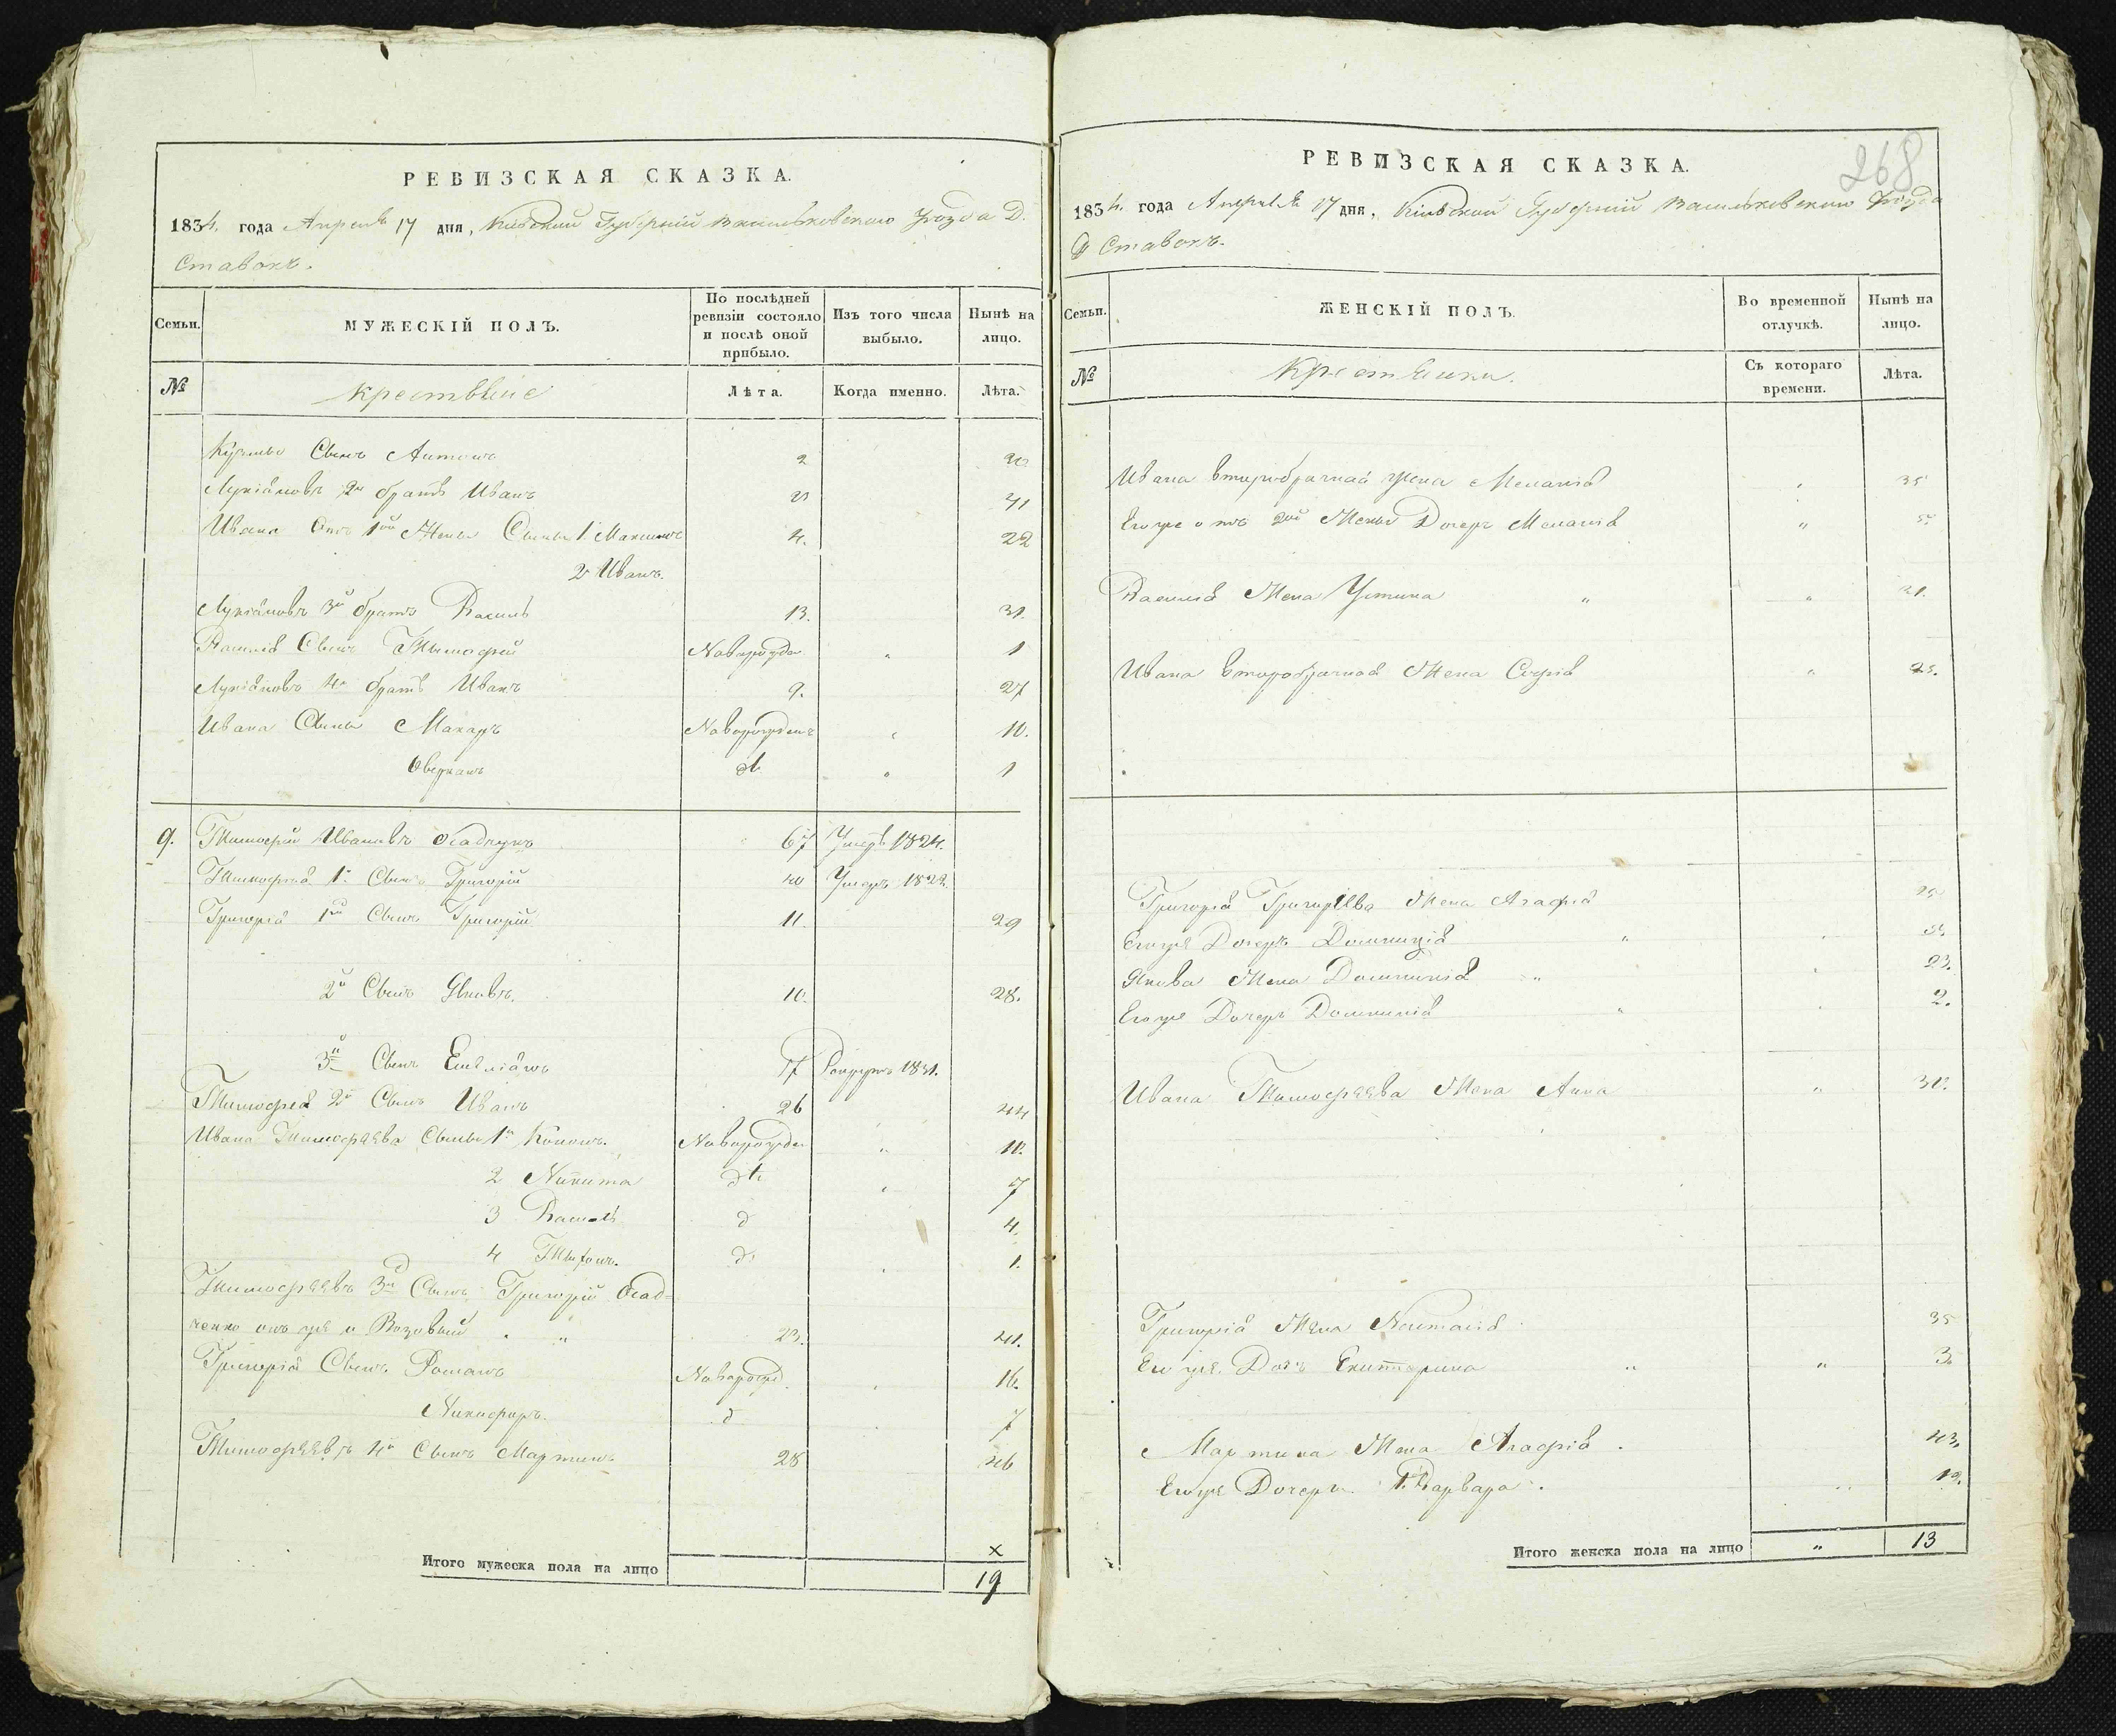 РЕВИЗСКАЯ СКАЗКА.
1834. года Апреля 17 дня, Кіевской Губерніи Васильковского Уезда Д.
Ставокъ.
Семьи.
МУЖЕСКІЙ ПОЛЪ.
По послѣдней ревизіи состояло и послѣ оной прибыло.
Изъ того числа выбыло.
Нынѣ на лицо.
№
Крестьяне
Лѣта.
Когда именно.
Лѣта.
Кузьмы Сынъ Антонъ 2 20
Лукіановъ 2й братъ Иванъ 23 41
Ивана Отъ 1ой Жены Сыны 1 Максимъ 4. 22
2 Иванъ.
Лукіановъ 3й братъ Василь 13. 31.
Василія Сынъ Тимофей Новорожден. „ 1
Лукіановъ 4й братъ Иванъ 9. 27
Ивана Сыны Макаръ Новорожденъ „ 10.
Оверкамъ „ 1
9. Тимофей Ивановъ Осадчукъ 67 Умеръ 1824.
Тимофея 1й Сынъ Григорій 40 Умеръ 1822.
Григорія 1ый Сынъ Григорій 11. 29
2й Сынъ Яковъ. 10. 28.
3й Сынъ Емеліанъ 1831.
Тимофея 2й Сынъ Иванъ 26 44
Ивана Тимофеева Сыны 1й Кононъ. Новорожден „ 10.
2 Никита 7
3 Василь д 4.
4 д. 1.
Тимофеевъ 3й Сынъ Григорій Осад-
ченко онъ же и 23. 41.
Григорія Сынъ Романъ Наворожд. 16.
Никифоръ. д 7
Тимофеевъ 4й Сынъ Мартинъ 28 46
Итого мужеска пола на лицо
×
19
268
РЕВИЗСКАЯ СКАЗКА.
1834. года Апреля 17 дня, Кіевской Губерніи Васильковского Уезда
Д Ставокъ.
Семьи.
ЖЕНСКІЙ ПОЛЪ.
Во временной отлучкѣ.
Нынѣ на лицо.
№
Крестьянки.
Съ котораго времени.
Лѣта.
Ивана второбрачная жена Меланія „ 35
Егоже отъ 2ой Жены Дочерь Меланія „
Василія Жена Устина „ „ 21.
Ивана второбрачная Жена Софія „ 25.
Григорія Григорьева Жена Агафія 25
Егоже Дочерь Доминикія „
Якова Жена Доминикія „ 23.
Егоже Дочерь Доминикія „ 2.
Ивана Тимофеева Жена Анна „ 30.
Григорія Жена Наталія 35
Его же Дочь Екатерина „ „ 3
Мартина Жена Агафія . 43.
Егоже Дочерь 1. Варвара .
Итого женска пола на лицо „ 13